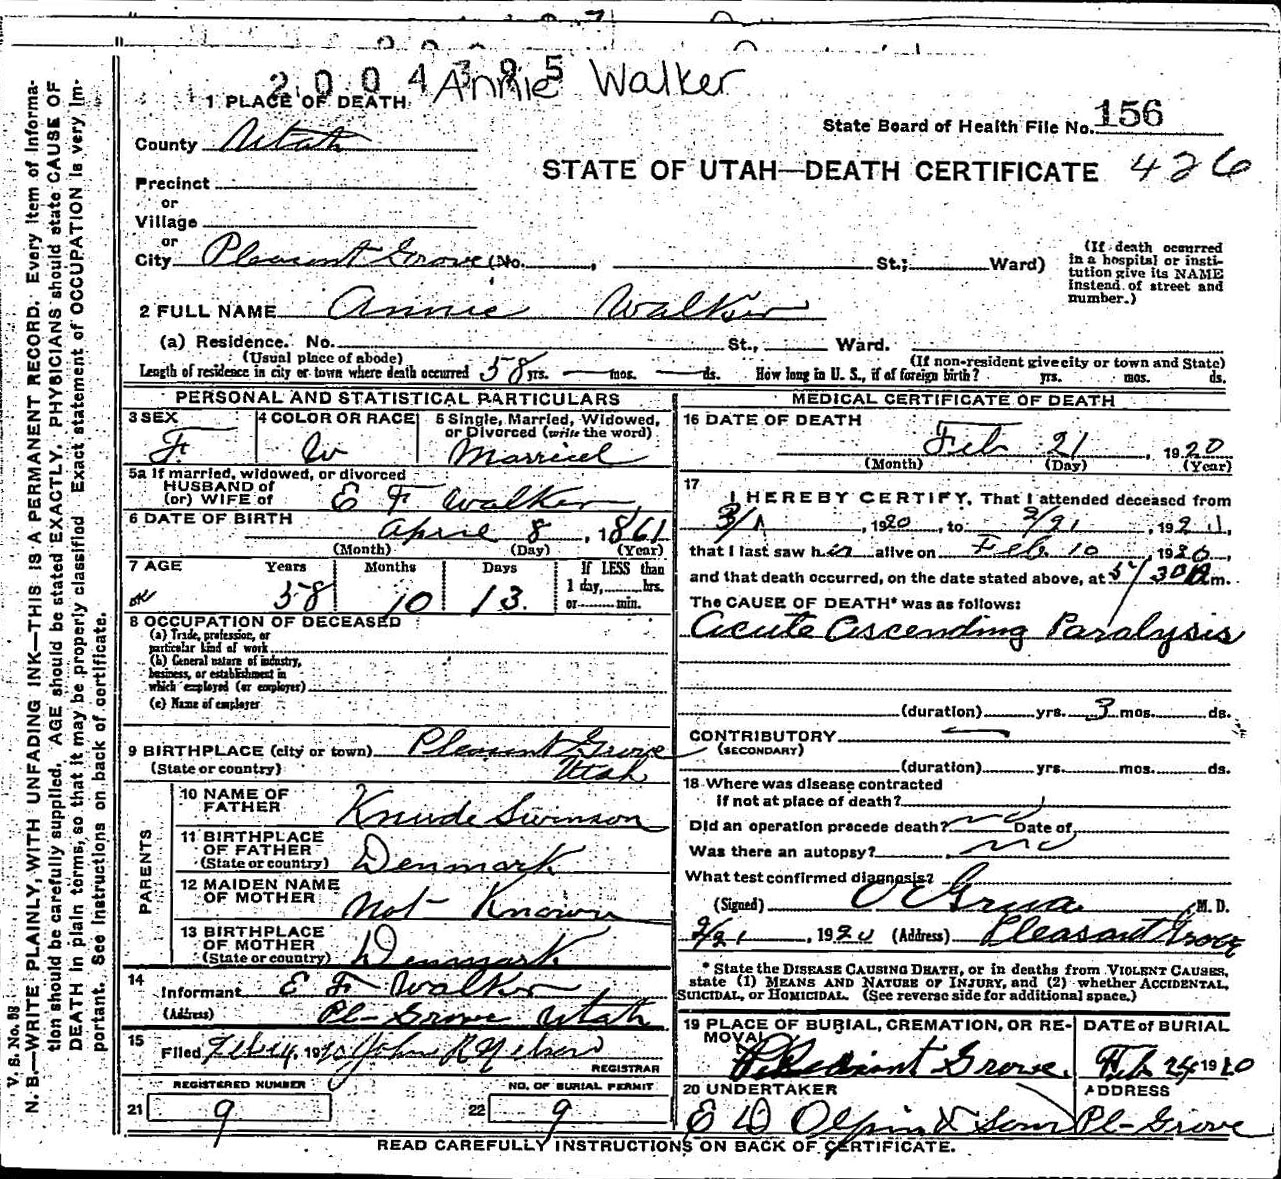 2004395 Annie Walker
1 PLACE OF DEATH
State Board of Health File No. 156
County Utah
STATE OF UTAH—DEATH CERTIFICATE 426
Precinct
or
Village
or
City Pleasant Grove (No. , St.; Ward)
(If death occurred in a hospital or institution give its NAME instead of street and number.)
2 FULL NAME Annie Walker
(a) Residence. No. St., Ward.
(Usual place of abode) (If non-resident give city or town and State)
Length of residence in city or town where death occurred 58 yrs. — mos. — ds. How long in U. S., if of foreign birth? yrs. mos. ds.
PERSONAL AND STATISTICAL PARTICULARS
3 SEX 4 COLOR OR RACE 5 Single, Married, Widowed, or Divorced (write the word)
F W Married
5a If married, widowed, or divorced
HUSBAND of
(or) WIFE of E F Walker
6 DATE OF BIRTH
April 8, 1861
(Month) (Day) (Year)
7 AGE Years Months Days If LESS than
1 day, hrs.
or min.
58 10 13
8 OCCUPATION OF DECEASED
(a) Trade, profession, or
particular kind of work
(b) General nature of industry,
business, or establishment in
which employed (or employer)
(c) Name of employer
9 BIRTHPLACE (city or town) Pleasant Grove
(State or country) Utah
PARENTS
10 NAME OF
FATHER Knude Swinson
11 BIRTHPLACE
OF FATHER
(State or country) Denmark
12 MAIDEN NAME
OF MOTHER Not Known
13 BIRTHPLACE
OF MOTHER
(State or country) Denmark
14
Informant E F Walker
(Address) Pl-Grove Utah
15
Filed 1920 John R Nelson
REGISTRAR
REGISTERED NUMBER NO. OF BURIAL PERMIT
21 9 22 9
MEDICAL CERTIFICATE OF DEATH
16 DATE OF DEATH
Feb 21, 1920
(Month) (Day) (Year)
17
I HEREBY CERTIFY, That I attended deceased from
, 1920, to 2/21, 192
that I last saw h alive on Feb 10, 1920,
and that death occurred, on the date stated above, at 5/30 m.
The CAUSE OF DEATH* was as follows:
Acute Ascending Paralysis
(duration) yrs. 3 mos. ds.
CONTRIBUTORY —
(SECONDARY)
(duration) yrs. mos. ds.
18 Where was disease contracted
if not at place of death?
Did an operation precede death? no Date of
Was there an autopsy? no
What test confirmed diagnosis?
(Signed) M. D.
2/21, 1920 (Address) Pleasant Grove
* State the DISEASE CAUSING DEATH, or in deaths from VIOLENT CAUSES,
state (1) MEANS AND NATURE OF INJURY, and (2) whether ACCIDENTAL,
SUICIDAL, or HOMICIDAL. (See reverse side for additional space.)
19 PLACE OF BURIAL, CREMATION, OR REMOVAL DATE of BURIAL
Pleasant Grove. Feb 24 1920
20 UNDERTAKER ADDRESS
E D Olpin & Sons Pl-Grove
READ CAREFULLY INSTRUCTIONS ON BACK OF CERTIFICATE.
V. S. No. 88
N. B.—WRITE PLAINLY, WITH UNFADING INK—THIS IS A PERMANENT RECORD. Every item of Informa-
tion should be carefully supplied. AGE should be stated EXACTLY. PHYSICIANS should state CAUSE OF
DEATH in plain terms, so that it may be properly classified. Exact statement of OCCUPATION is very im-
portant. See instructions on back of certificate.